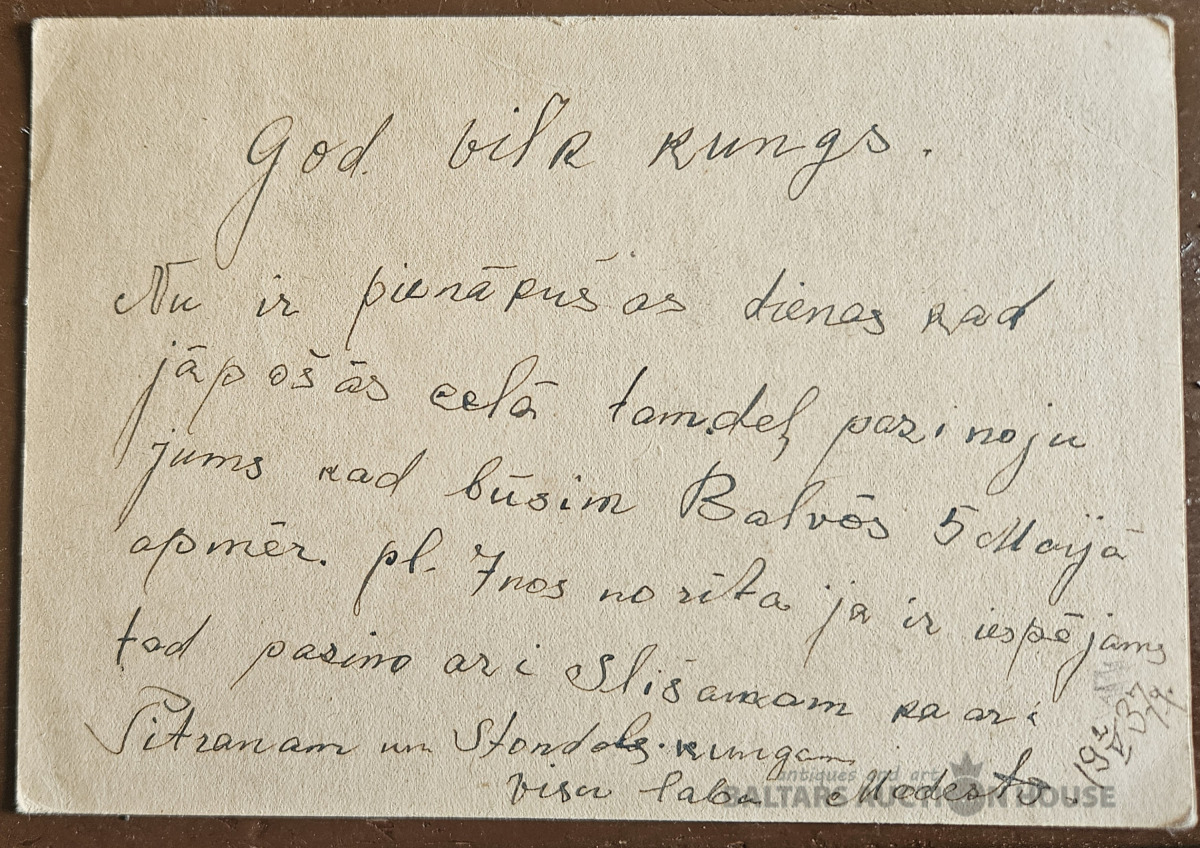 God. vilk kungs.
Nu ir pienākušas dienas kad
jāpošās celā tamdeļ pazinoju
jums kad būsim Balvōs 5 Maijā
apmēr. pl. 7nos no rīta ja ir iespējams
tad pasino ari Slišankam ka ari
Pitranam un Stordals. kungam
visu labu Modesto.
19 2/V 37
antiques and art
BALTARS AUCTION HOUSE